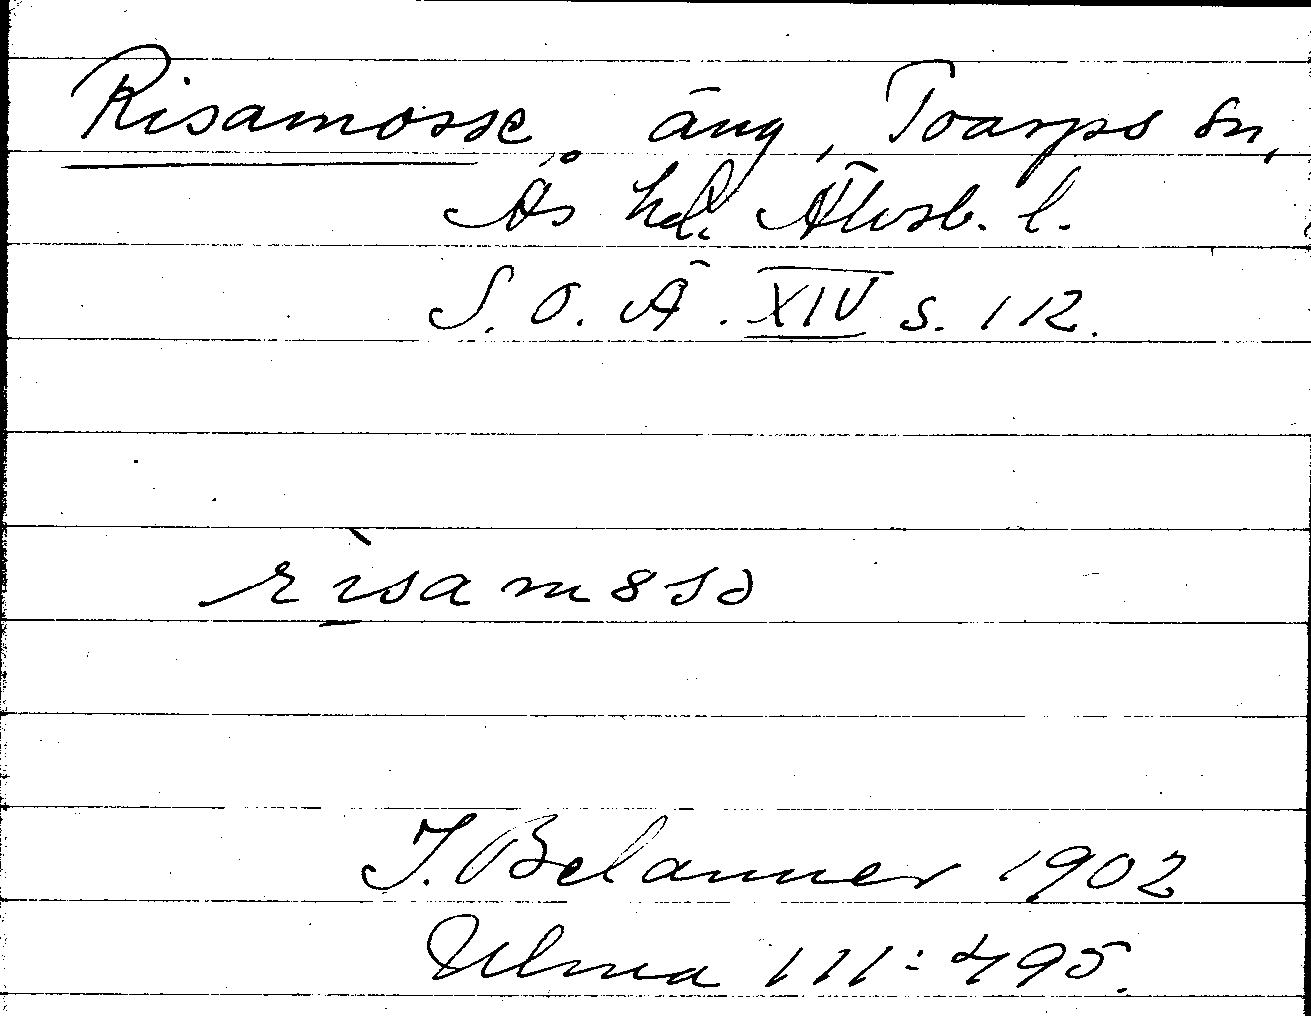 Risamosse, äng, Toarps sn,
Ås hd. Älvsb. l.
S. O. Ä. XIV s. 112.
rìsamosə
J. Belanner 1902
Ulma 111:495.